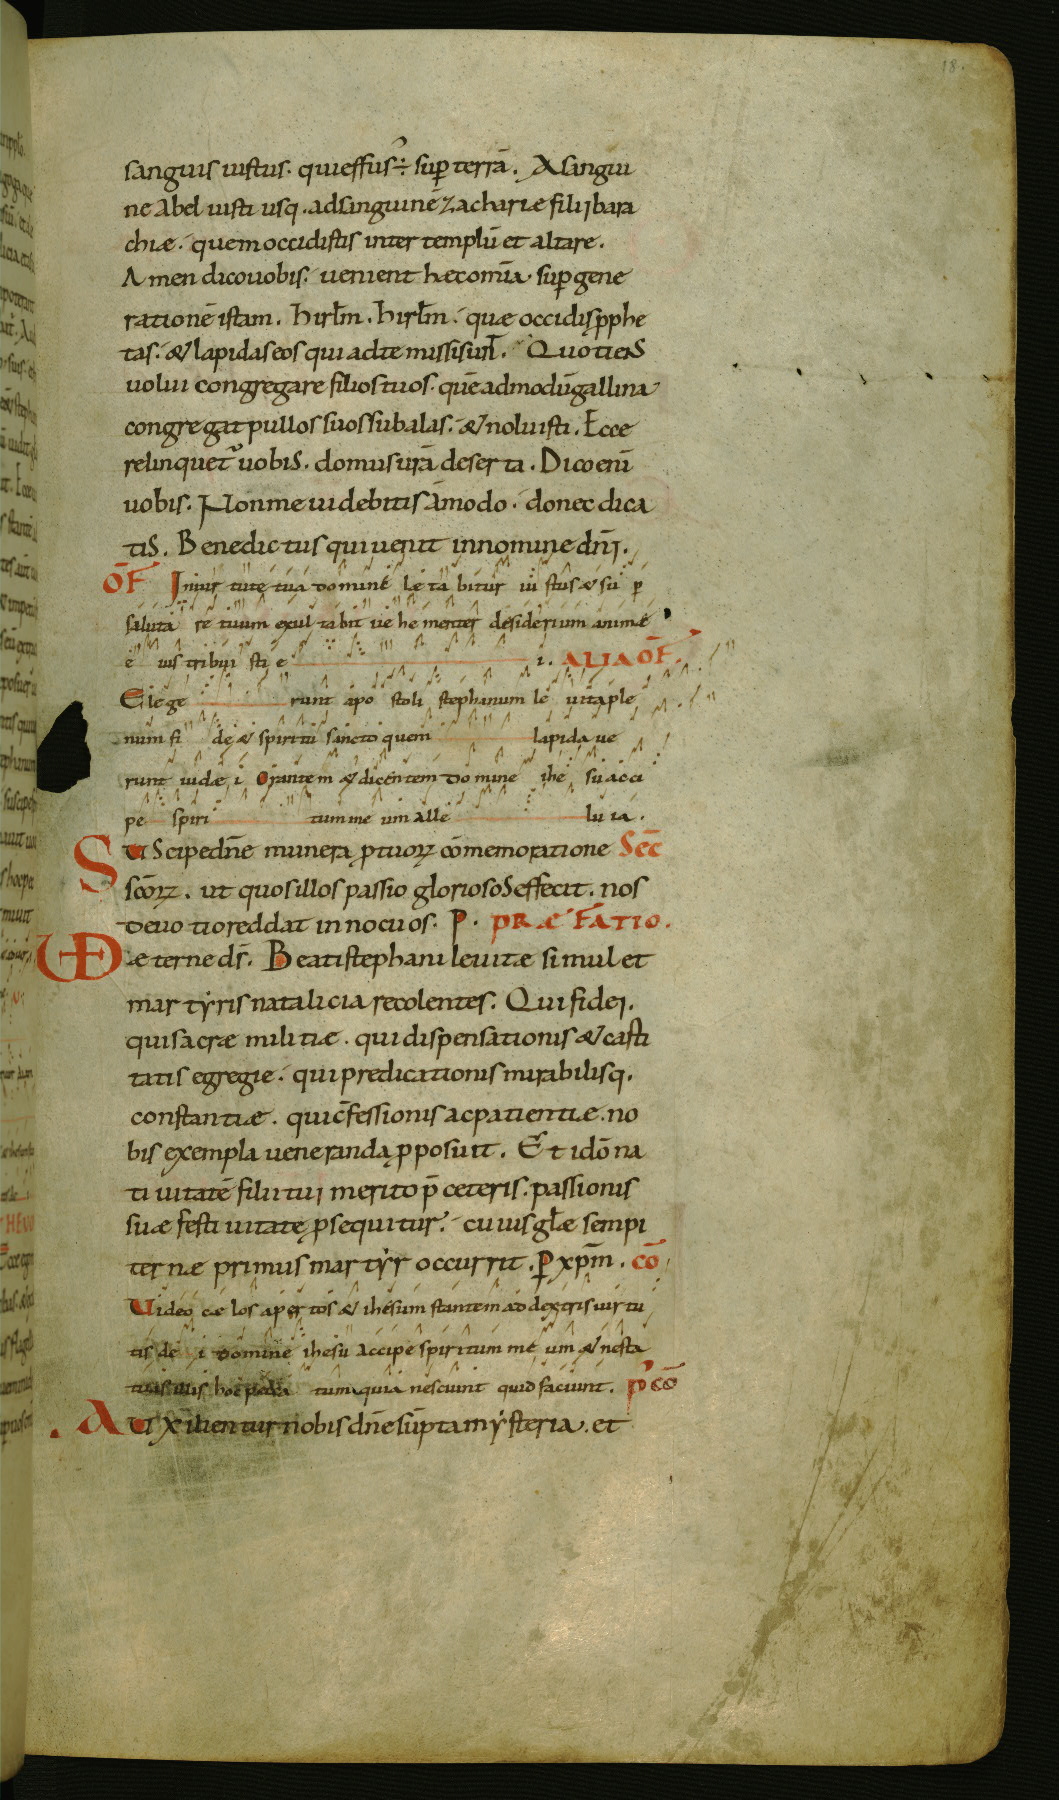 18.
sanguis iustus. qui effusʼ÷ sup̱ terrā. A sangui
ne Abel iusti usq. ad sanguinē zachariæ filij bara
chiæ. quem occidistis inter templū et altare.
Amen dico uobis: uenient hæc omīa sup̱ gene
rationē istam. hirl̄m. hirl̄m. quæ occidis p̱phe
tas. & lapidas eos qui ad te missi sun̄t. Quotiens
uolui congregare filios tuos. quēadmodū gallina
congregat pullos suos sub alas. & noluisti. Ecce
relinquet᷑ uobis. domus urā deserta. Dico enī
uobis. Non me uidebitis āmodo. donec dica
tis. Benedictus qui uenit in nomine dn̄i.
ŌF In uirtute tua domine letabitur iustus & sup̱
salutare tuum exultabit uehementer desiderium animę
e ius tribui sti e i. ALIA ŌF.
Elege runt apo stoli stephanum le uita ple
num fi de & spiritu sancto quem lapidaue
runt iudæi Orantem & dicentem domine ihe su acci
pe spiri tum me um alle lu ia.
SUScipe dn̄e munera p̱ tuorꝝ cōmemoratione SEC̄
sc̄orꝝ. ut quos illos passio gloriosos effecit. nos
deuotio reddat innocuos. P. PRÆFATIO.
VD æterne ds̄. Beati stephani leuitæ simul et
martyris natalicia recolentes. Qui fidei.
qui sacræ militiæ. qui dispensationis & casti
tatis egregiæ. qui predicationis mirabilisq.
constantiæ. qui c̄fessionis ac patientiæ. no
bis exempla ueneranda p̱posuit. Et idō na
tiuitatē filii tui merito p̄ ceteris. passionis
suæ festiuitate p̱sequitur. cuius gl̄æ sempi
ternæ primus martyr occurrit. P̱ xp̄m. CŌ
Uideo cælos apertos & ihesum stantem ad dextris uirtu
tis dei domine ihesu accipe spiritum meum & ne sta
tuas illis hoc peccatum quia nesciunt quid faciunt. P̄ CŌ
AUXilientur nobis dn̄e sūpta mysteria. et